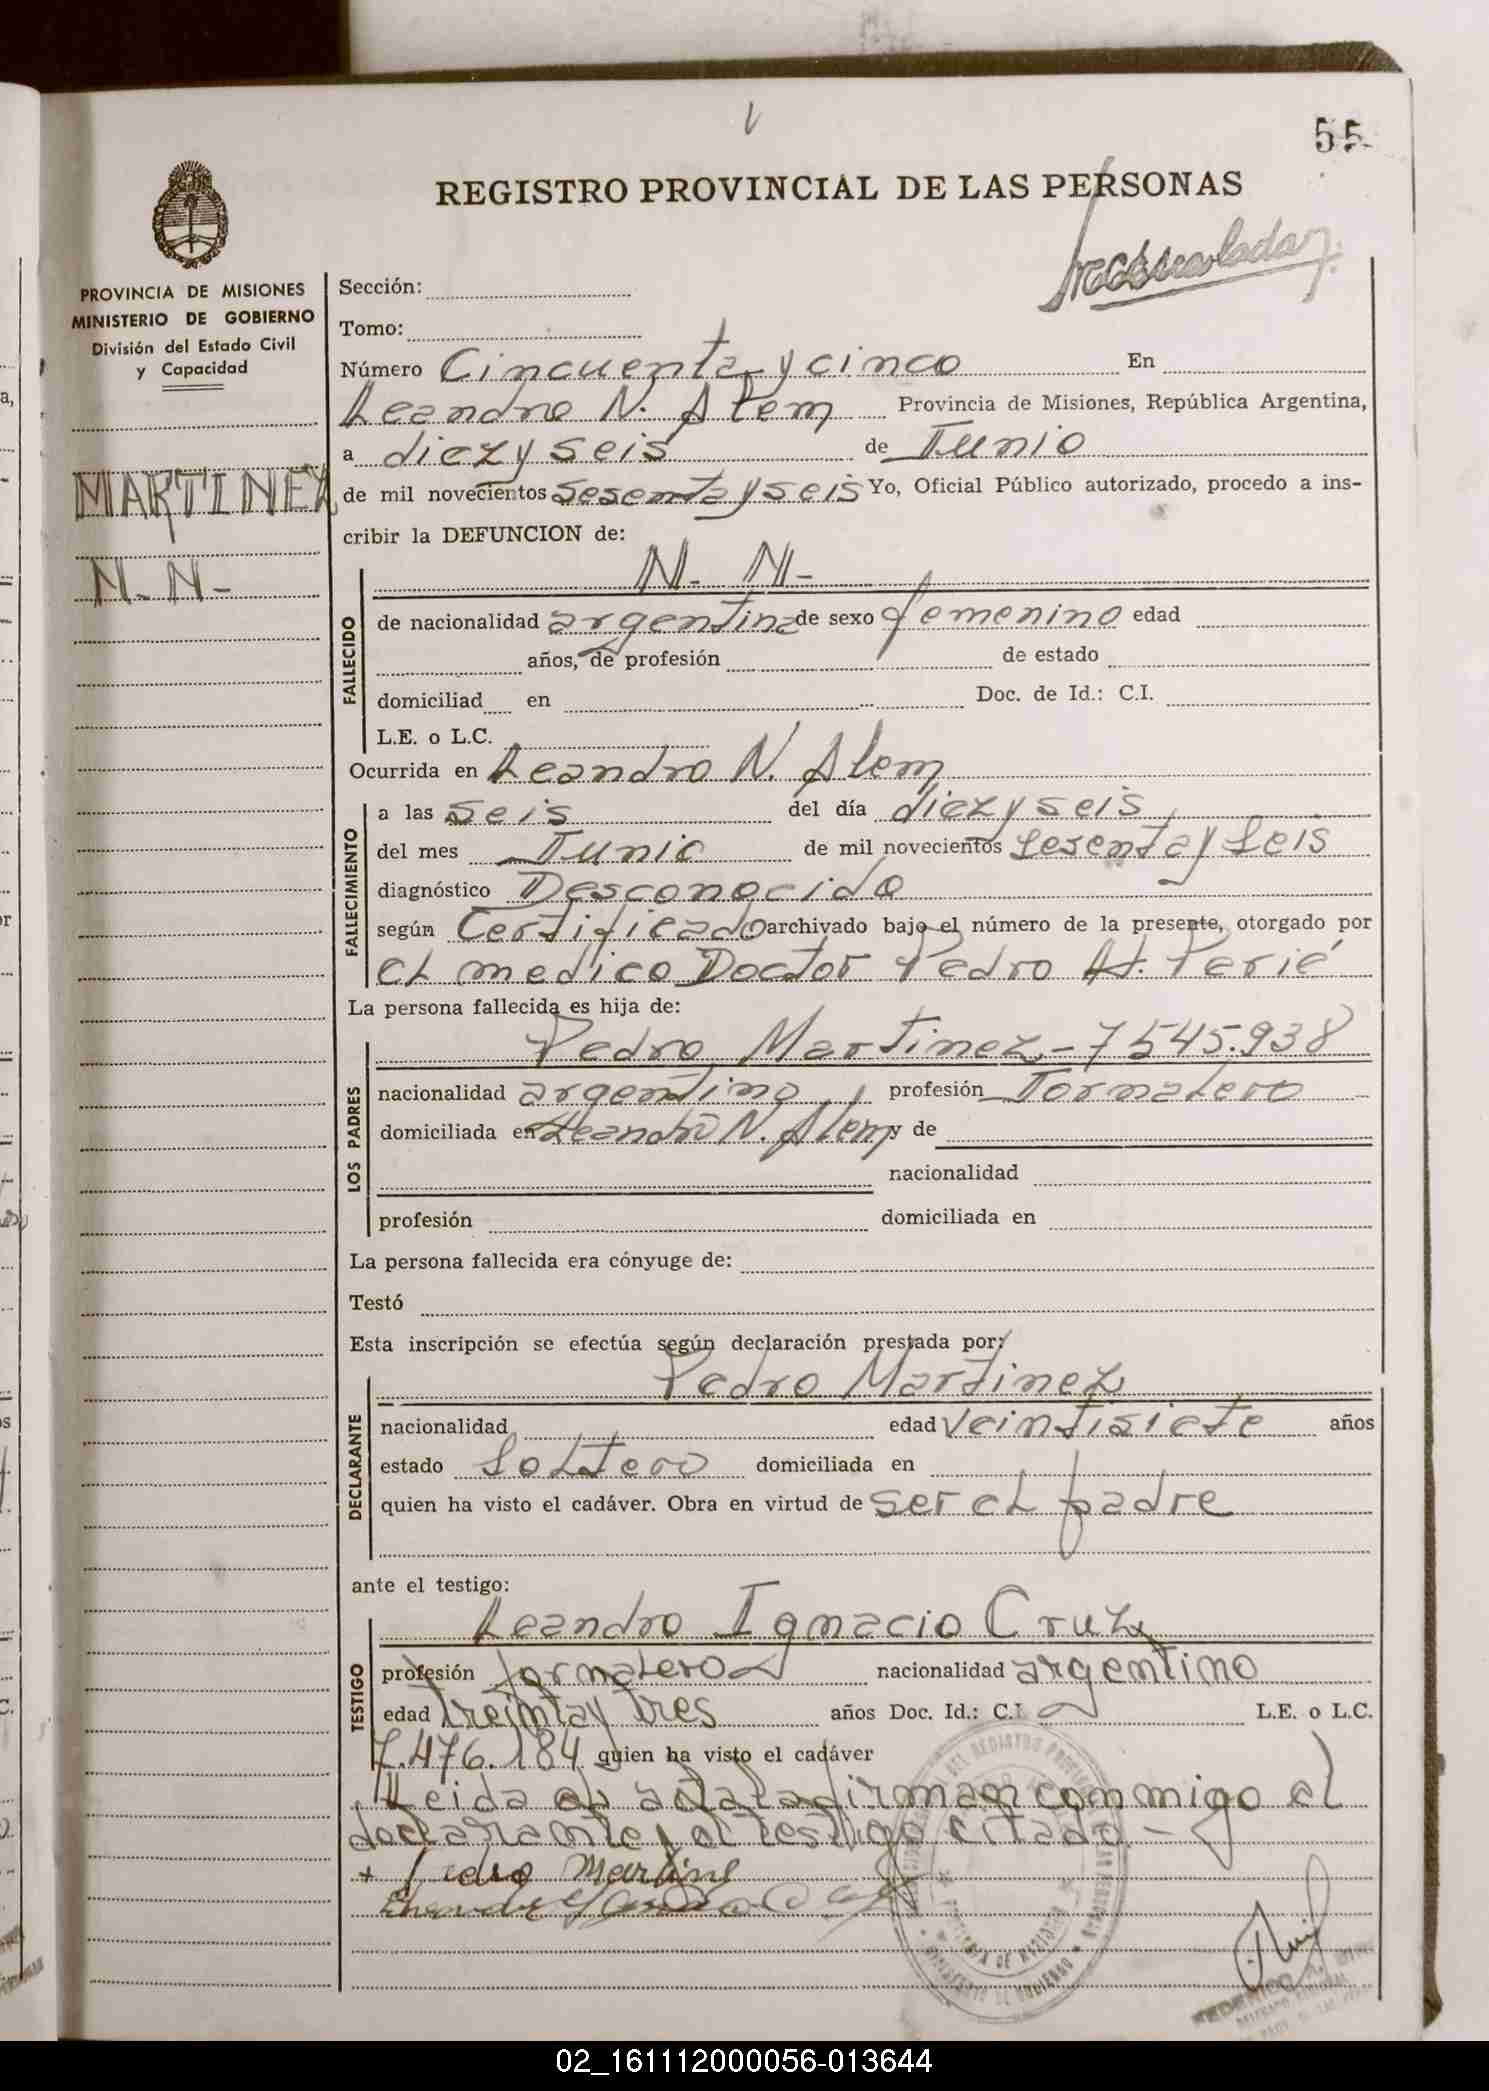 55
REGISTRO PROVINCIAL DE LAS PERSONAS
PROVINCIA DE MISIONES
MINISTERIO DE GOBIERNO
División del Estado Civil
y Capacidad
MARTINEZ
N. N-
Sección:
Tomo:
Número Cincuenta y cinco En
Leandro N. Alem Provincia de Misiones, República Argentina,
a diez y seis de Junio
de mil novecientos sesenta y seis Yo, Oficial Público autorizado, procedo a ins-
cribir la DEFUNCION de:
N. N-
FALLECIDO
de nacionalidad argentina de sexo femenino edad
años, de profesión de estado
domiciliad en Doc. de Id.: C.I.
L.E. o L.C.
Ocurrida en Leandro N. Alem
FALLECIMIENTO
a las seis del día diez y seis
del mes Junio de mil novecientos sesenta y seis
diagnóstico Desconocido
según Certificado archivado bajo el número de la presente, otorgado por
el medico Doctor Pedro A. Perié
La persona fallecida es hija de:
LOS PADRES
Pedro Martinez - 7545.938
nacionalidad argentino profesión Jornalero
domiciliada en Leandro N. Alem y de
nacionalidad
profesión domiciliada en
La persona fallecida era cónyuge de:
Testó
Esta inscripción se efectúa según declaración prestada por:
DECLARANTE
Pedro Martinez
nacionalidad edad veintisiete años
estado Soltero domiciliada en
quien ha visto el cadáver. Obra en virtud de ser el padre
ante el testigo:
TESTIGO
Leandro Ignacio Cruz
profesión jornalero nacionalidad argentino
edad treinta y tres años Doc. Id.: C.I. L.E. o L.C.
7.476.184 quien ha visto el cadáver
Leida el acta la firman conmigo el
declarante y el testigo citado -
+ Pedro Martine
02_161112000056-013644